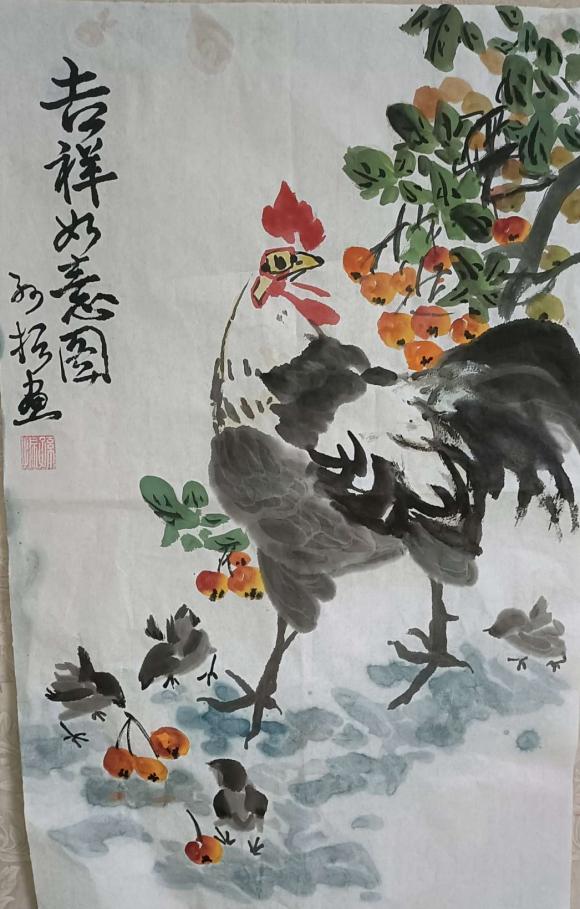 吉祥如意图
孙 画